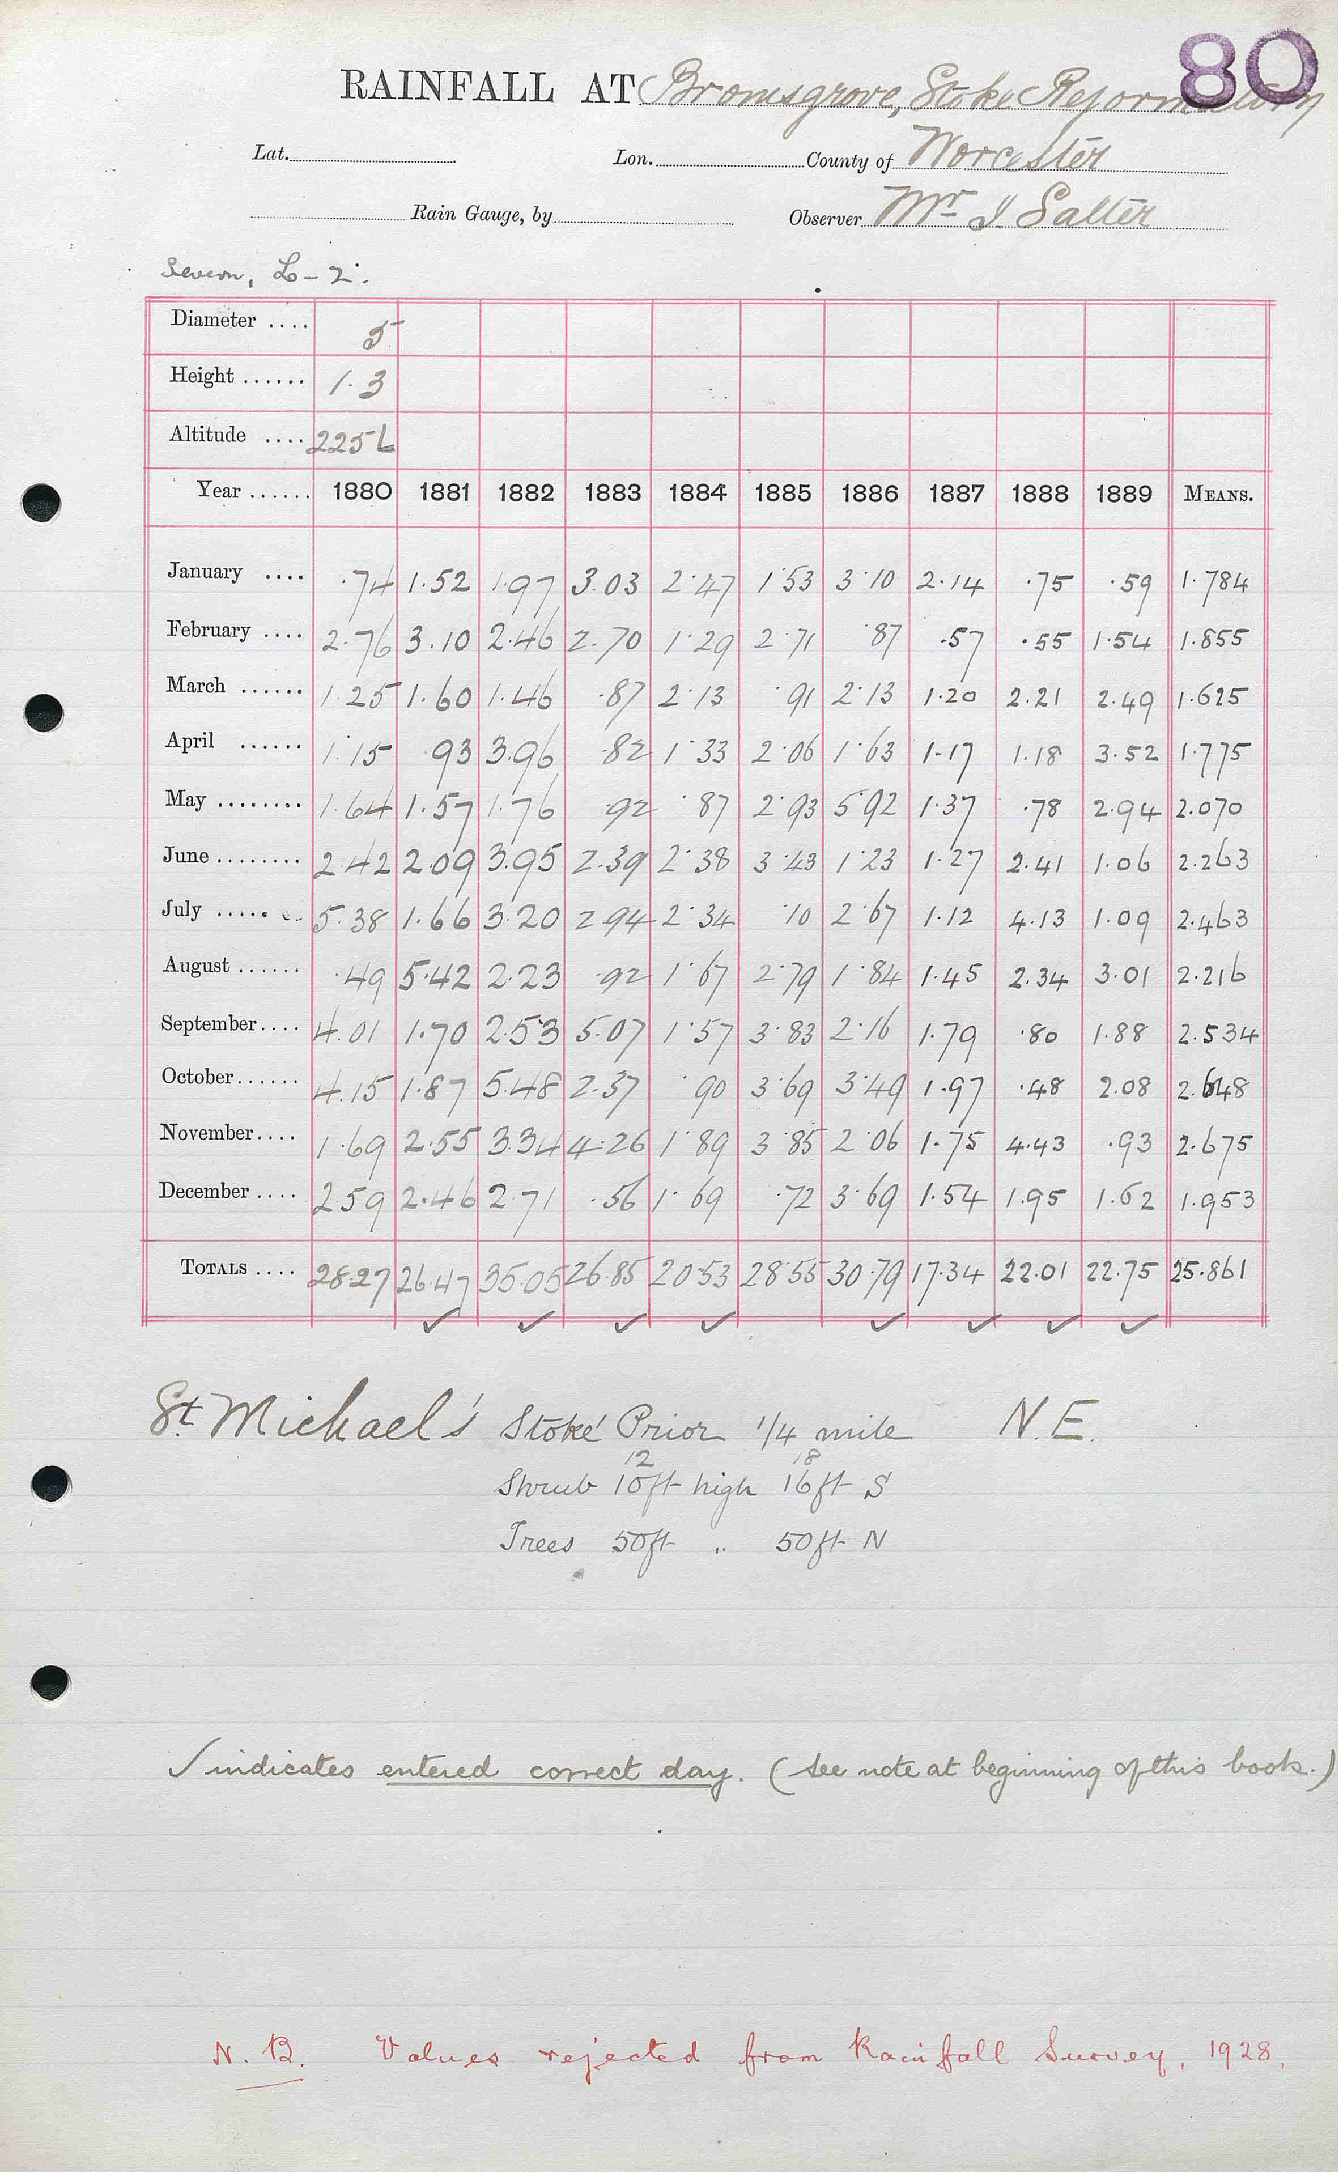 80
RAINFALL AT Bromsgrove, Stoke Reformatory
Lat. Lon. County of Worcester
Rain Gauge, by Observer Mr I Salter
Severn, L-2.
Diameter .... 5
Height ...... 1.3
Altitude .... 225 L
Year ...... 1880 1881 1882 1883 1884 1885 1886 1887 1888 1889 MEANS.
January .... .74 1.52 1.97 3.03 2.47 1.53 3.10 2.14 .75 .59 1.784
February .... 2.76 3.10 2.46 2.70 1.29 2.71 .87 .57 .55 1.54 1.855
March ...... 1.25 1.60 1.46 .87 2.13 .91 2.13 1.20 2.21 2.49 1.625
April ...... 1.15 .93 3.96 .82 1.33 2.06 1.63 1.17 1.18 3.52 1.775
May ........ 1.64 1.57 1.76 .92 .87 2.93 5.92 1.37 .78 2.94 2.070
June ........ 2.42 2.09 3.95 2.39 2.38 3.43 1.23 1.27 2.41 1.06 2.263
July ..... 5.38 1.66 3.20 2.94 2.34 .10 2.67 1.12 4.13 1.09 2.463
August ...... .49 5.42 2.23 .92 1.67 2.79 1.84 1.45 2.34 3.01 2.216
September.... 4.01 1.70 2.53 5.07 1.57 3.83 2.16 1.79 .80 1.88 2.534
October...... 4.15 1.87 5.48 2.37 .90 3.69 3.49 1.97 .48 2.08 2.648
November.... 1.69 2.55 3.34 4.26 1.89 3.85 2.06 1.75 4.43 .93 2.675
December .... 2.59 2.46 2.71 .56 1.69 .72 3.69 1.54 1.95 1.62 1.953
TOTALS .... 28.27 26.47 35.05 26.85 20.53 28.55 30.79 17.34 22.01 22.75 25.861
✓ ✓ ✓ ✓ ✓ ✓ ✓ ✓
St. Michael's Stoke Prior 1/4 mile N.E.
12 18
Shrub 10ft high 16ft S
Trees 50ft " 50ft N
✓ indicates entered correct day. (See note at beginning of this book.)
N.B. Values rejected from Rainfall Survey, 1928.